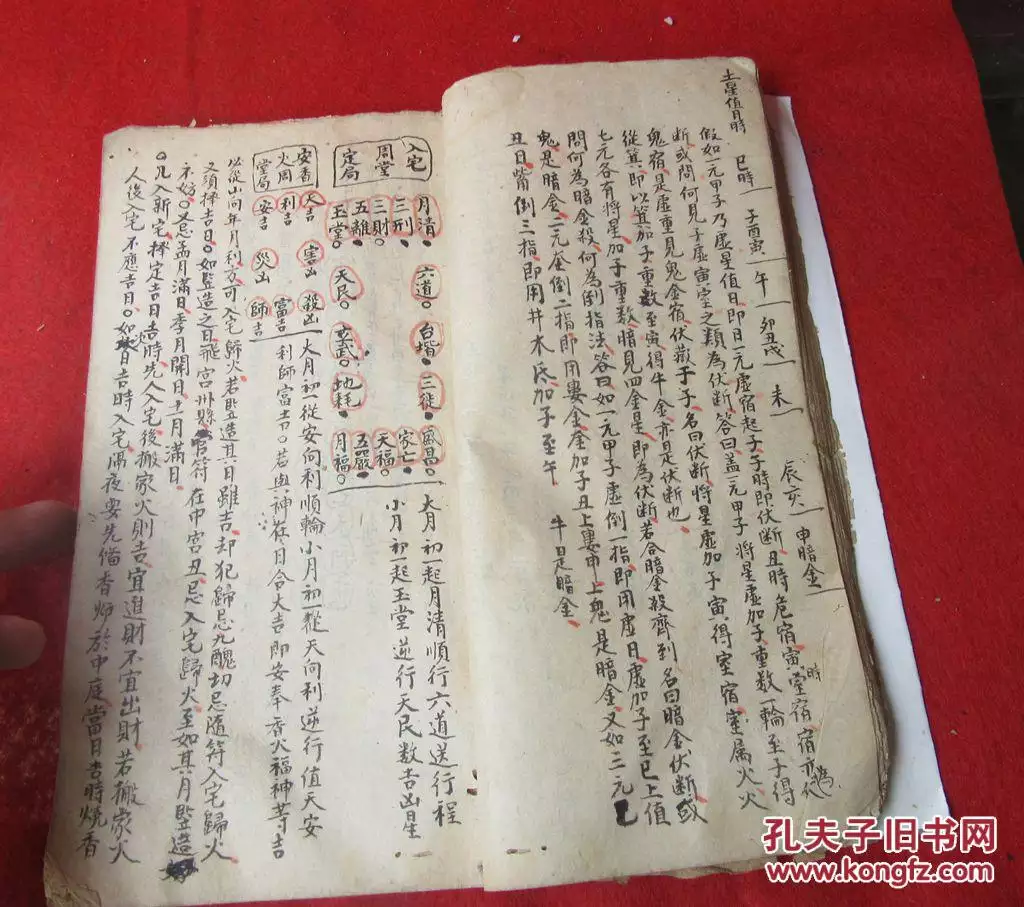 土星值日時
巳時 子酉寅 午 卯丑戌 未 辰亥 申暗金
假如一元甲子乃虛星值日即日一元虛宿起子子時即伏斷丑時危宿寅時室宿宿亦伏
断或問何見子虛寅室之類為伏斷答曰盖一元甲子將星虛加子重数一輪至子得
鬼宿是虛重見鬼金宿伏藏于子名曰伏断將星虛加子寅得室宿室属火火
從箕即以箕加子重数至寅得牛金亦是伏断也
七元各有將星加子重数暗見四金星即為伏断若合暗金殺齊到名曰暗金伏断或
問何為暗金殺何為倒指法答曰如一元甲子虛倒一指即用虛日虛加子至巳上值
鬼是暗金二元奎倒二指即用婁金奎加子丑上婁申上鬼是暗金又如三元
丑日觜倒三指即用井木氐加子至午 牛是暗金
入宅周堂定局
月清 六道 台堦 三徙 盛昌
三刑 家亡
三財 天福
五離 五嚴
玉堂 天民 玄武 地耗 月福
大月初一起月清順行六道送行程
小月初一起玉堂逆行天民数吉凶星
安香火周堂局
天吉 害凶 殺凶
利吉 富吉
安吉 災凶 師吉
大月初一從安向利順輪小月初一從天向利逆行值天安
利師富吉 若與神在日合大吉即安奉香火福神等吉
必從山向年月利方可入宅歸火若豎造其日雖吉却犯歸忌九醜切忌隨符入宅歸火
又須擇吉日如豎造之日飛宮州縣官符在中宮丑忌入宅歸火至如其月豎造
不妨又忌孟月滿日季月開日十一月滿日
凡入新宅擇定吉日吉時先入入宅後搬家火則吉宜進財不宜出財若搬家火
人後入宅不應吉日如吉日吉時入宅隔夜要先備香师於中庭當日吉時燒香
孔夫子旧书网
www.kongfz.com